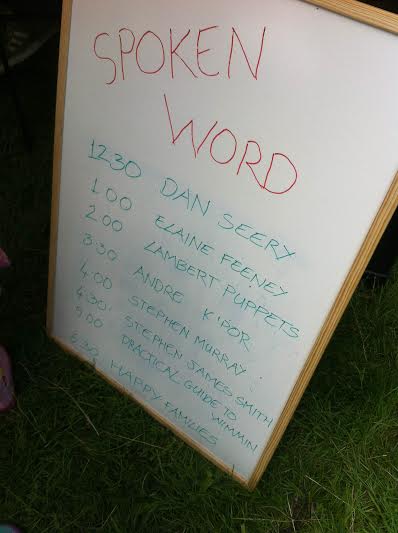 SPOKEN
WORD
12 30 DAN SEERY
1 00 ELAINE FEENEY
2 00 LAMBERT PUPPETS
3 30 ANDRE K'POR
4:00 STEPHEN MURRAY
4:30 STEPHEN JAMES SMITH
5:00 PRACTICAL GUIDE TO
WIMMIN
6:30 HAPPY FAMILIES